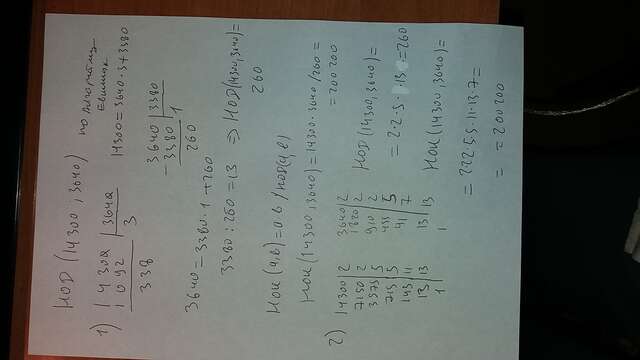 НОД (14300; 3640)
1) по алгоритму Евклида
14300 | 3640
1092 | 3
338
14300 = 3640·3+3380
3640 | 3380
-3380 | 1
260
3640 = 3380·1+260
3380 : 260 = 13 => НОД(14300, 3640) = 260
НОК (a, b) = a b / НОД(a, b)
НОК (14300, 3640) = 14300·3640/260 = = 200200
2)
14300 | 2
7150 | 2
3575 | 5
715 | 5
143 | 11
13 | 13
1
3640 | 2
1820 | 2
910 | 2
455 | 5
91 | 7
13 | 13
1
НОД (14300, 3640) =
= 2·2·5·13 = 260
НОК (14300, 3640) =
= 222·5·5·11·13·7 =
= = 200200